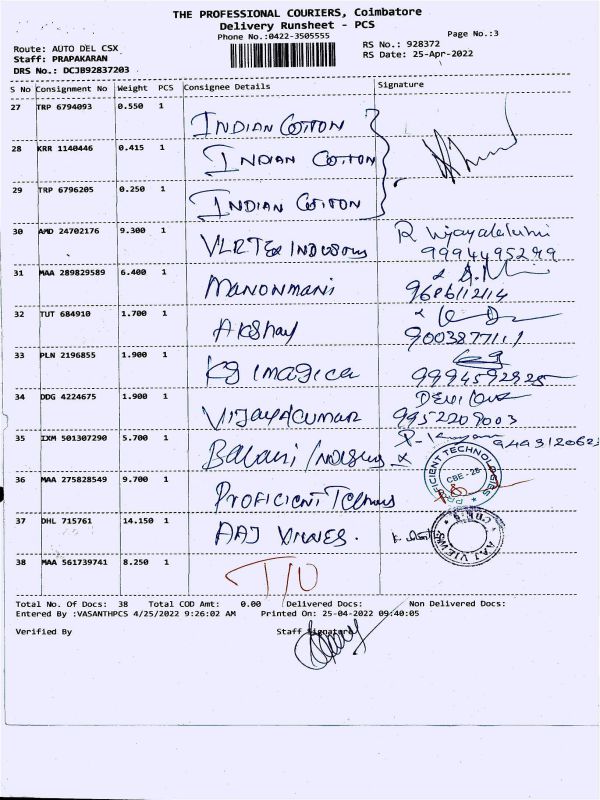 THE PROFESSIONAL COURIERS, Coimbatore
Delivery Runsheet - PCS
Phone No.:0422-3505555
Page No.:3
Route: AUTO DEL CSX
RS No.: 928372
Staff: PRAPAKARAN
RS Date: 25-Apr-2022
DRS No.: DCJB92837203
S No Consignment No Weight PCS Consignee Details Signature
27 TRP 6794093 0.550 1 INDIAN COTTON
28 KRR 1140446 0.415 1 INDIAN COTTON
29 TRP 6796205 0.250 1 INDIAN COTTON
30 AMD 24702176 9.300 1 VLRTEX INDUSTRIES R Vijayalakshmi
9994495299
31 MAA 289829589 6.400 1 MANONMANI
9686112114
32 TUT 684910 1.700 1 AKSHAY
9003877111
33 PLN 2196855 1.900 1 KG IMAGICA
9994592925
34 DDG 4224675 1.900 1 VIJAYAKUMAR
9952209003
35 IXM 501307290 5.700 1 Balaji
PROFICIENT TECHNOLOGIES
CBE - 28
36 MAA 275828549 9.700 1 PROFICIENT
37 DHL 715761 14.150 1 AAJ VIEWES.
AAJ VIEWES
38 MAA 561739741 8.250 1 T/O
Total No. Of Docs: 38 Total COD Amt: 0.00 Delivered Docs: Non Delivered Docs:
Entered By :VASANTHPCS 4/25/2022 9:26:02 AM Printed On: 25-04-2022 09:40:05
Verified By Staff Signature